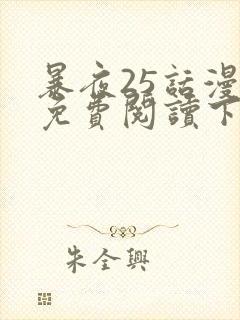 暴夜25話漫
免費閱讀下
朱全興